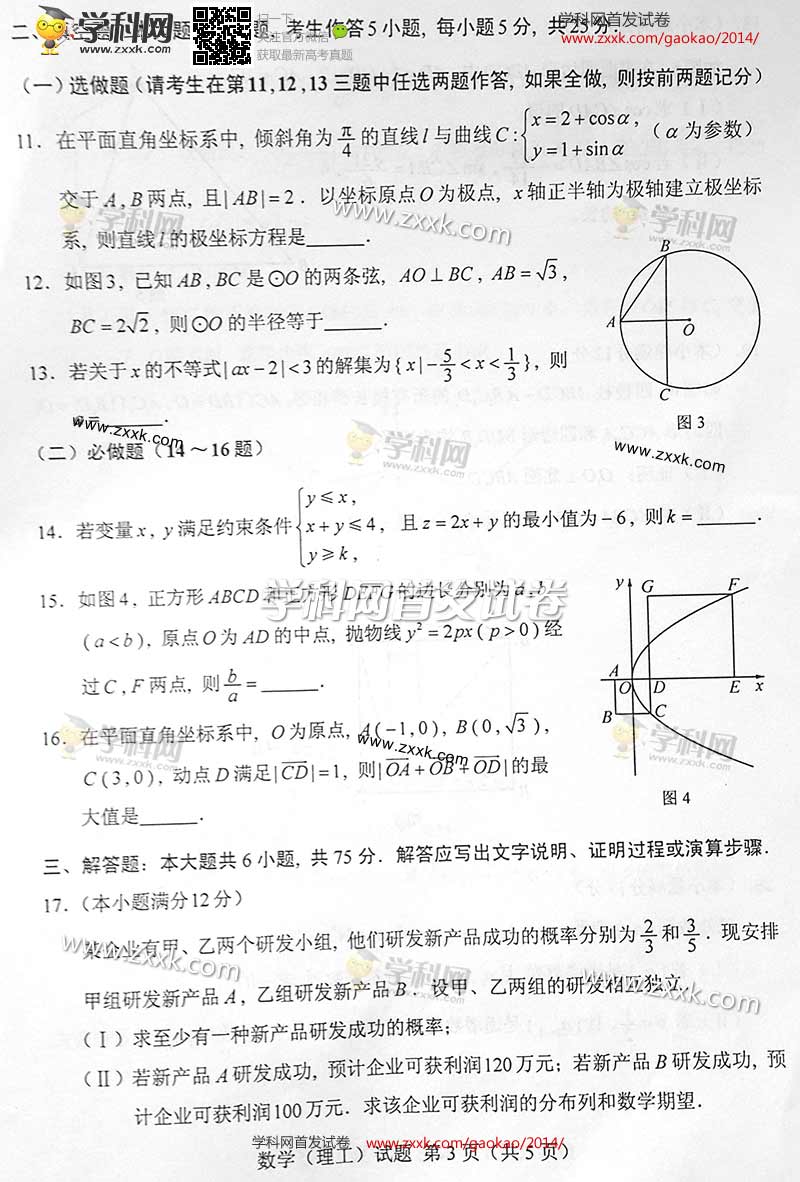 学科网首发试卷
www.zxxk.com/gaokao/2014/
关注官方微信
获取最新高考真题
学科网
www.zxxk.com
考生作答5小题, 每小题5分, 共25分.
(一)选做题(请考生在第11,12,13三题中任选两题作答, 如果全做, 则按前两题记分)
11. 在平面直角坐标系中, 倾斜角为 π/4 的直线 l 与曲线 C: { x=2+cosα, y=1+sinα (α为参数)
交于 A, B 两点, 且|AB|=2. 以坐标原点O为极点, x轴正半轴为极轴建立极坐标
系, 则直线 l 的极坐标方程是______.
12. 如图3, 已知 AB, BC 是⊙O的两条弦, AO⊥BC, AB=√3,
BC=2√2, 则⊙O的半径等于______.
B
A
O
C
图3
13. 若关于x的不等式|ax-2|<3的解集为{x|-5/3<x<1/3}, 则
______.
(二)必做题(14~16题)
14. 若变量x, y满足约束条件 { y≤x, x+y≤4, y≥k, 且z=2x+y的最小值为-6, 则k=______.
15. 如图4, 正方形ABCD和正方形DEFG的边长分别为a, b
(a<b), 原点O为AD的中点, 抛物线y²=2px(p>0)经
过C, F两点, 则 b/a =______.
y
G
F
A
O
D
E
x
B
C
图4
16. 在平面直角坐标系中, O为原点, A(-1,0), B(0,√3),
C(3,0), 动点D满足|CD|=1, 则|OA+OB+OD|的最
大值是______.
三、解答题: 本大题共6小题, 共75分. 解答应写出文字说明、证明过程或演算步骤.
17. (本小题满分12分)
某企业有甲、乙两个研发小组, 他们研发新产品成功的概率分别为 2/3 和 3/5. 现安排
甲组研发新产品A, 乙组研发新产品B. 设甲、乙两组的研发相互独立.
(Ⅰ) 求至少有一种新产品研发成功的概率;
(Ⅱ) 若新产品A研发成功, 预计企业可获利润120万元; 若新产品B研发成功, 预
计企业可获利润100万元. 求该企业可获利润的分布列和数学期望.
学科网首发试卷 www.zxxk.com/gaokao/2014/
数学(理工)试题 第3页(共5页)